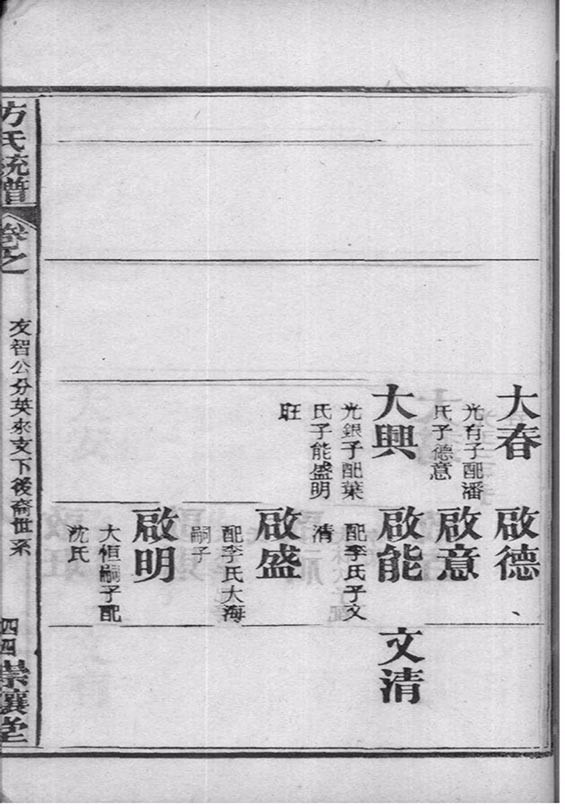 大春
光有子配潘
氏子德意
大興
光銀子配葉
氏子能盛明
旺
啟德
啟意
啟能
配李氏子文
清
啟盛
配李氏大海
嗣子
啟明
大恒嗣子配
沈氏
文清
方氏統譜
卷之
友智公分英來支下後裔世系
四四
崇讓堂